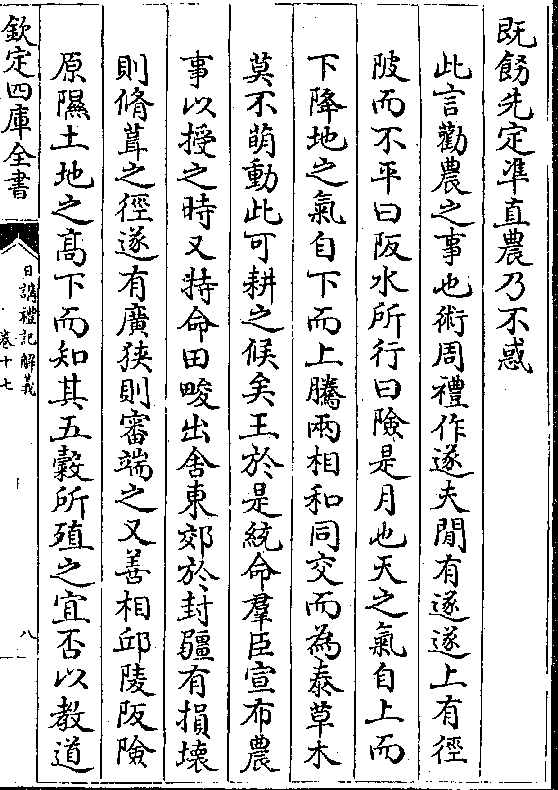 既飭先定準直農乃不惑
此言勸農之事也術周禮作遂夫閒有遂遂上有徑
陂而不平曰阪水所行曰險是月也天之氣自上而
下降地之氣自下而上騰兩相和同交而為泰草木
莫不萌動此可耕之候矣王於是統命羣臣宣布農
事以授之時又特命田畯出舍東郊於封疆有損壞
則脩葺之徑遂有廣狹則審端之又善相邱陵阪險
原隰土地之高下而知其五穀所殖之宜否以教道
欽定四庫全書
日講禮記解義
卷十七
八